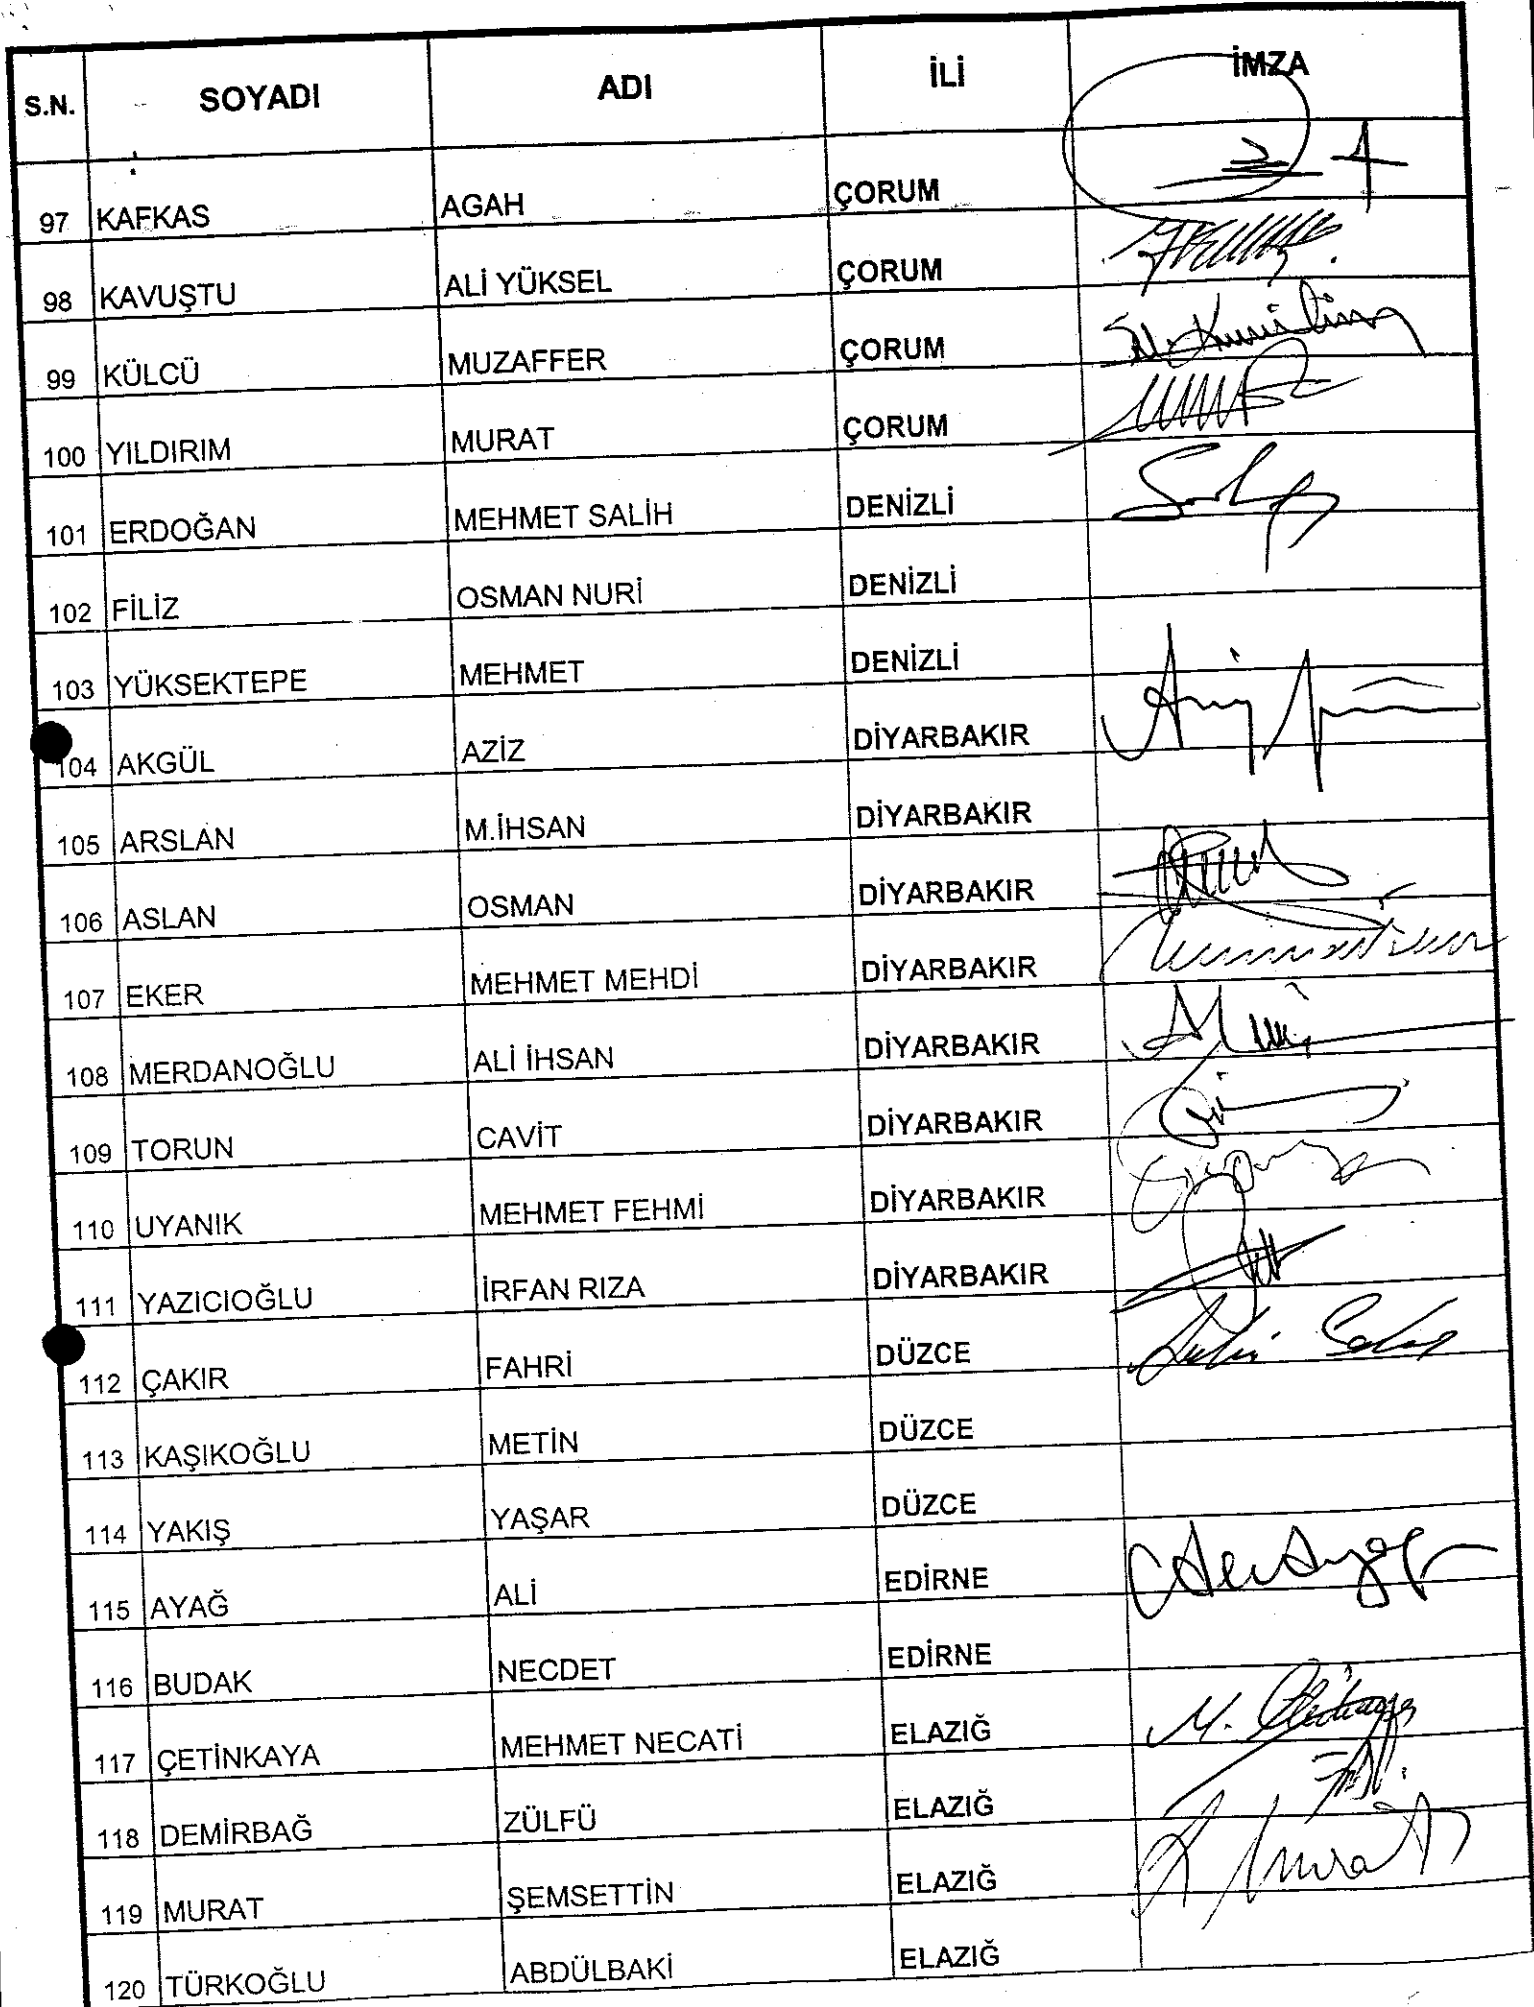 S.N. SOYADI ADI İLİ İMZA
97 KAFKAS AGAH ÇORUM
98 KAVUŞTU ALİ YÜKSEL ÇORUM
99 KÜLCÜ MUZAFFER ÇORUM
100 YILDIRIM MURAT ÇORUM
101 ERDOĞAN MEHMET SALİH DENİZLİ
102 FİLİZ OSMAN NURİ DENİZLİ
103 YÜKSEKTEPE MEHMET DENİZLİ
104 AKGÜL AZİZ DİYARBAKIR
105 ARSLAN M.İHSAN DİYARBAKIR
106 ASLAN OSMAN DİYARBAKIR
107 EKER MEHMET MEHDİ DİYARBAKIR
108 MERDANOĞLU ALİ İHSAN DİYARBAKIR
109 TORUN CAVİT DİYARBAKIR
110 UYANIK MEHMET FEHMİ DİYARBAKIR
111 YAZICIOĞLU İRFAN RIZA DİYARBAKIR
112 ÇAKIR FAHRİ DÜZCE
113 KAŞIKOĞLU METİN DÜZCE
114 YAKIŞ YAŞAR DÜZCE
115 AYAĞ ALİ EDİRNE
116 BUDAK NECDET EDİRNE
117 ÇETİNKAYA MEHMET NECATİ ELAZIĞ
118 DEMİRBAĞ ZÜLFÜ ELAZIĞ
119 MURAT ŞEMSETTİN ELAZIĞ
120 TÜRKOĞLU ABDÜLBAKİ ELAZIĞ